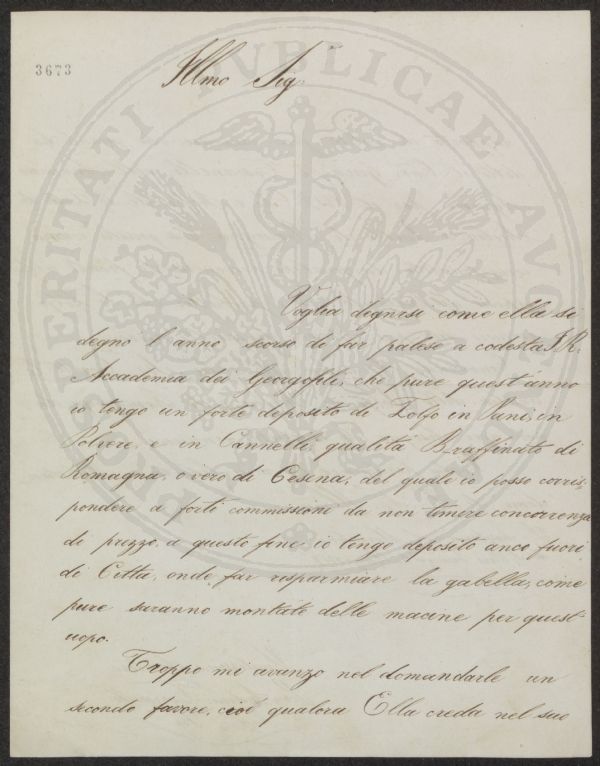 3673
Illmo Sig.
Voglia degnarsi come ella si
degno l'anno scorso di far palese a codesta I. R.
Accademia dei Georgofili, che pure quest'anno
io tengo un forte deposito di Zolfo in Pani, in
Polvere, e in Cannelli, qualità Braffinato di
Romagna, o vero di Cesena, del quale io posso corris-
pondere a forti commissioni da non temere concorrenza
di prezzo, a questo fine io tengo deposito anco fuori
di Citta, onde far risparmiare la gabella, come
pure saranno montate delle macine per quest'
uopo.
Troppo mi avanzo nel domandarle un
secondo favore, cioè qualora Ella creda nel suo
PROSPERITATI PUBLICAE AUGENDAE